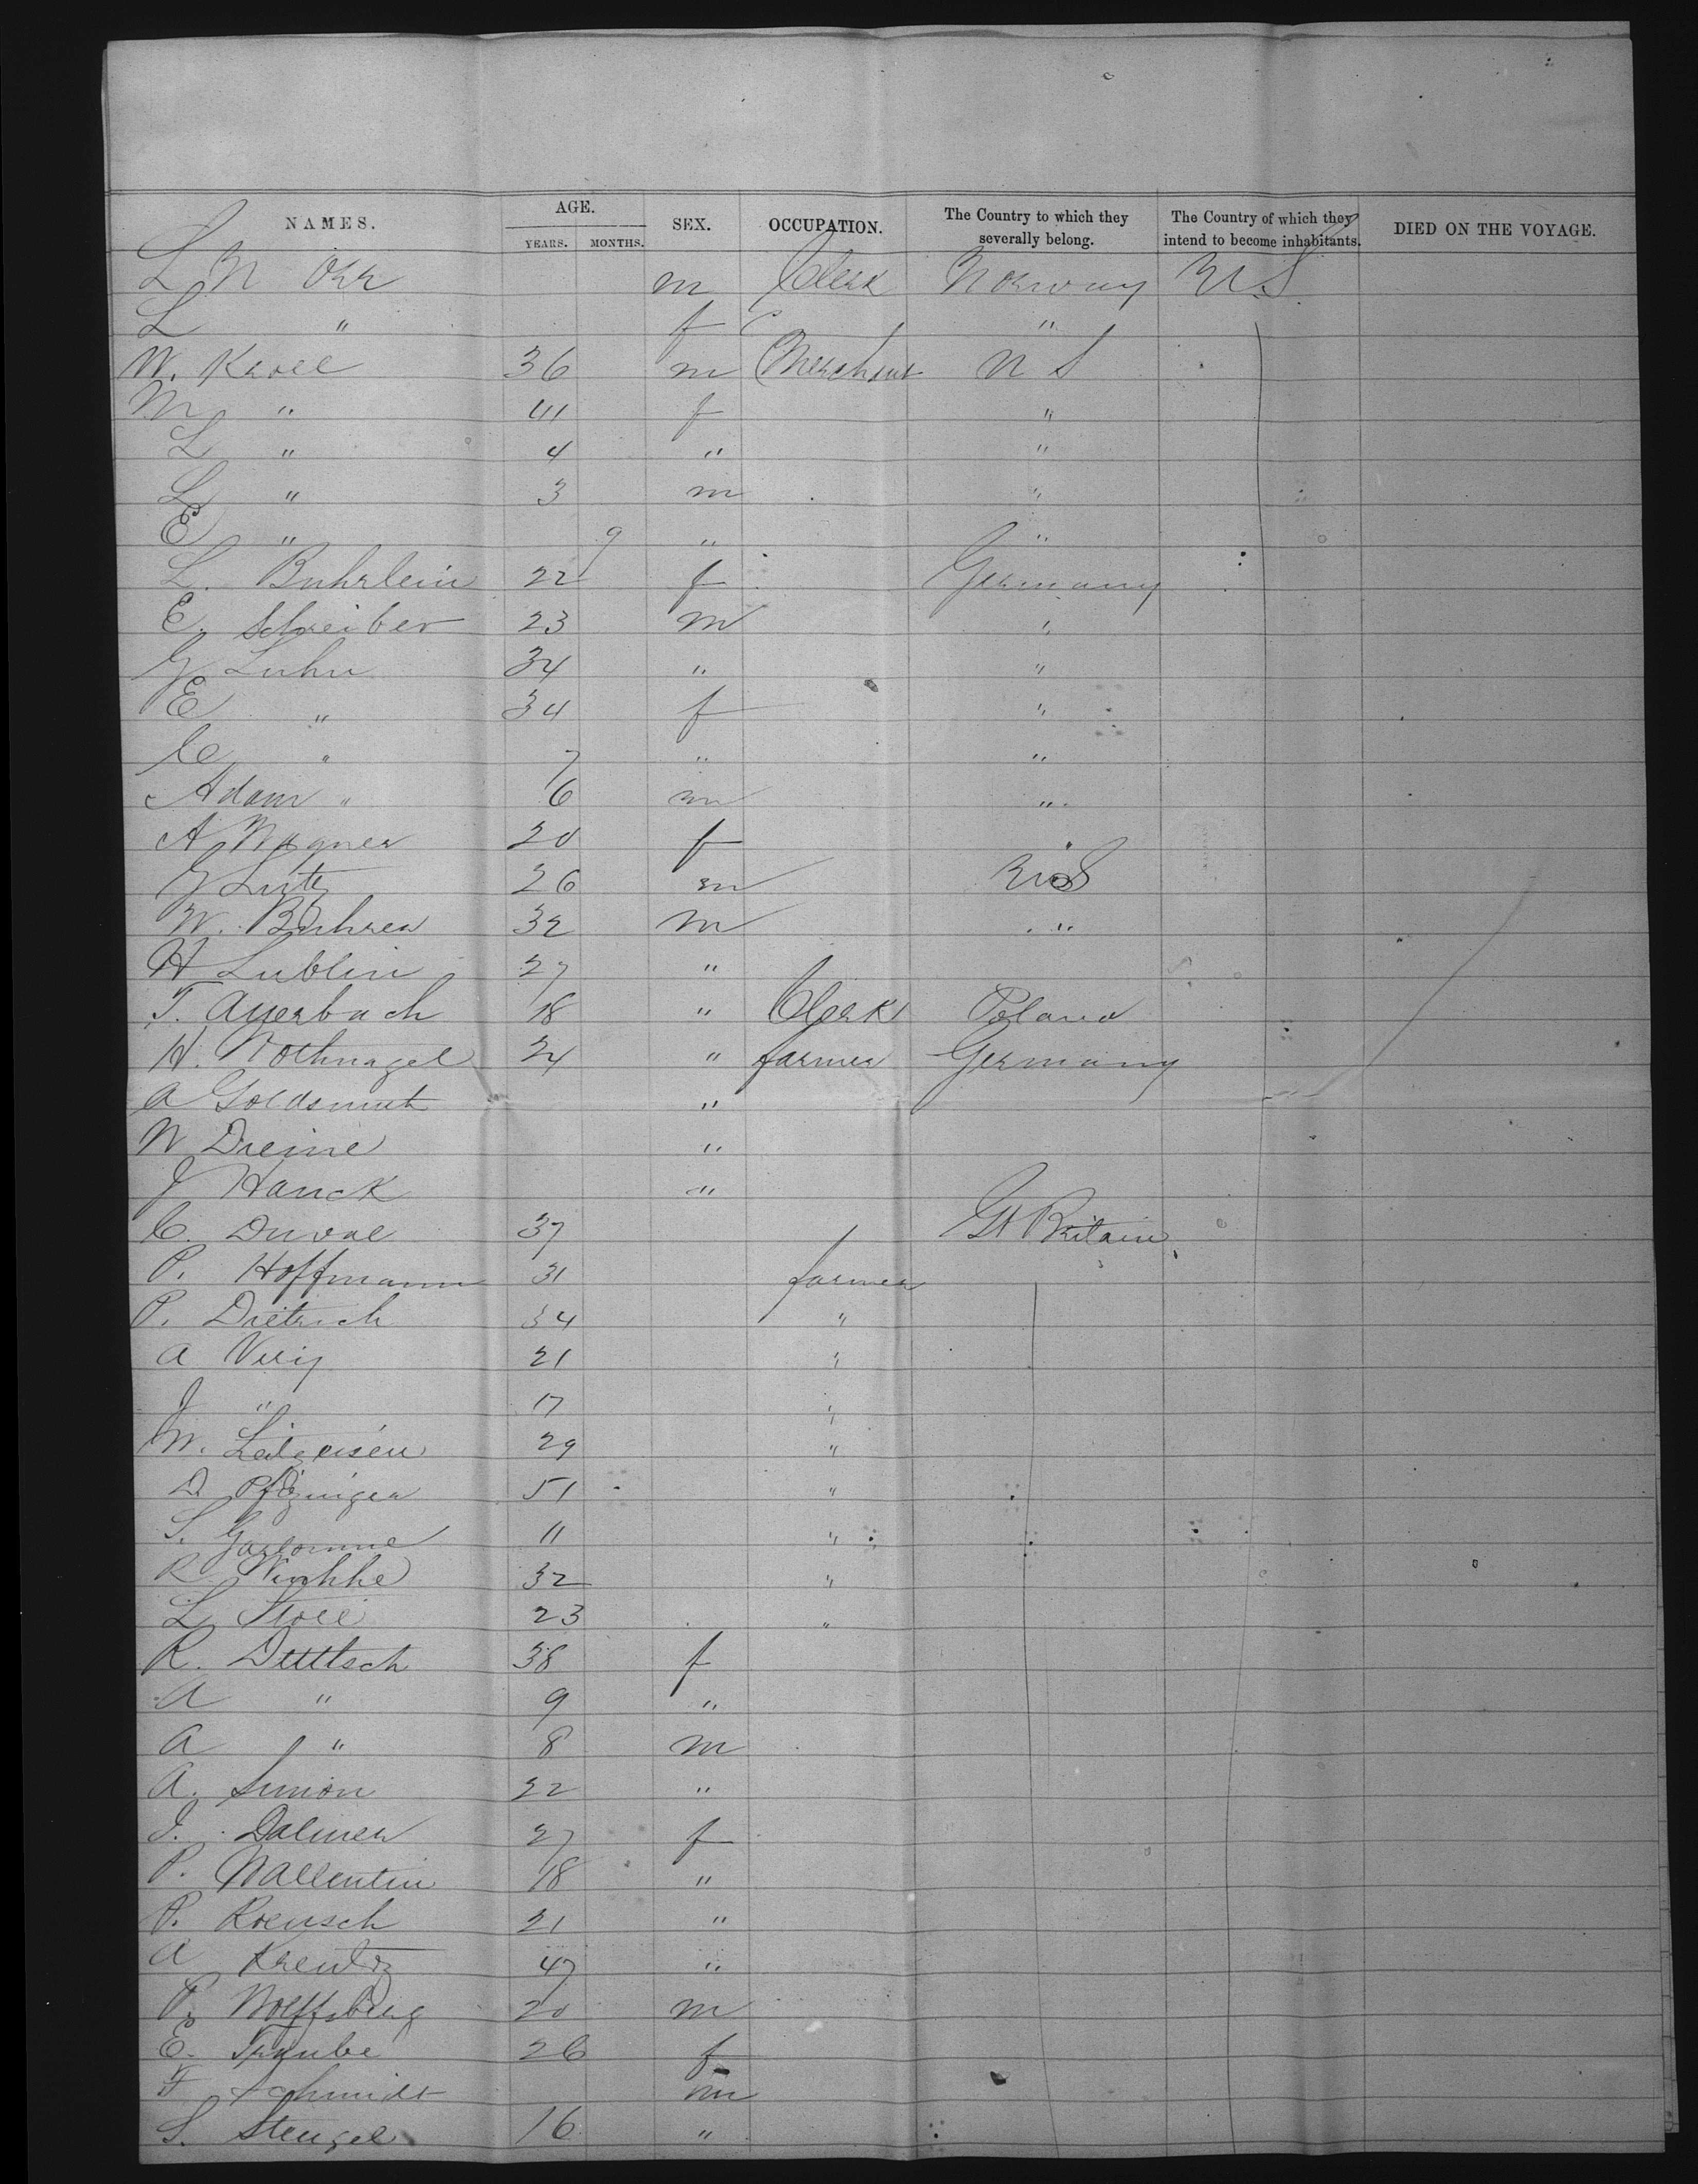 NAMES. AGE. SEX. OCCUPATION. The Country to which they severally belong. The Country of which they intend to become inhabitants. DIED ON THE VOYAGE.
YEARS. MONTHS.
L N Orr m Clerk Norway U.S.
L " f "
W. Kroll 36 m Merchant U S
M " 41 f "
L " 4 " "
L " 3 m "
E " 9 " "
L. Buhrlein 22 f Germany
E. Schreiber 23 m "
G Luhn 34 " "
E " 34 f "
C " 7 " "
Adam " 6 m "
A Wagner 20 f "
G Lutz 26 m U.S
W. Buhrer 32 m "
H Lublin 27 "
T. Auerbach 18 " Clerk Poland
H. Nothnagel 24 " farmer Germany
A Goldsmith "
W Dreine "
J Hauck "
C. Duval 37 Gt Britain
P. Hoffmann 31 farmer
P. Dietrich 34 "
A 21 "
J " 17 "
W. 29 "
D. 51 "
S. 11 "
R 32 "
L Stoll 23 "
R. 38 f
A " 9 "
A " 8 m
A. Simon 22 "
J. Dalmer 27 f
P. Wallentin 18 "
P. Roensch 21 "
A Kreutz 47 "
P. Wolffsberg 20 m
E. Traube 26 f
F Schmidt m
S. Stengel 16 "